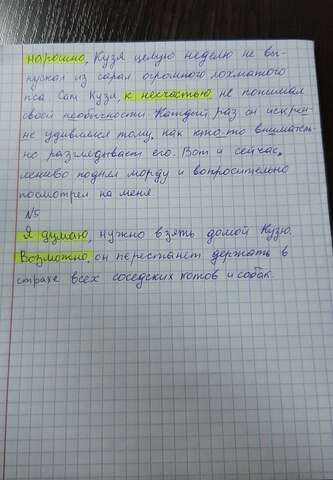 нарошно, Кузя целую неделю не вы-
пускал из сарая огромного лохматого
пса. Сам Кузя, к несчастью, не понимал
своей необычности. Каждый раз он искрен-
не удивлялся тому, как кто-то вниматель-
но разглядывает его. Вот и сейчас,
лениво поднял морду и вопросительно
посмотрел на меня
№5
Я думаю, нужно взять домой Кузю.
Возможно, он перестанет держать в
страхе всех соседских котов и собак.